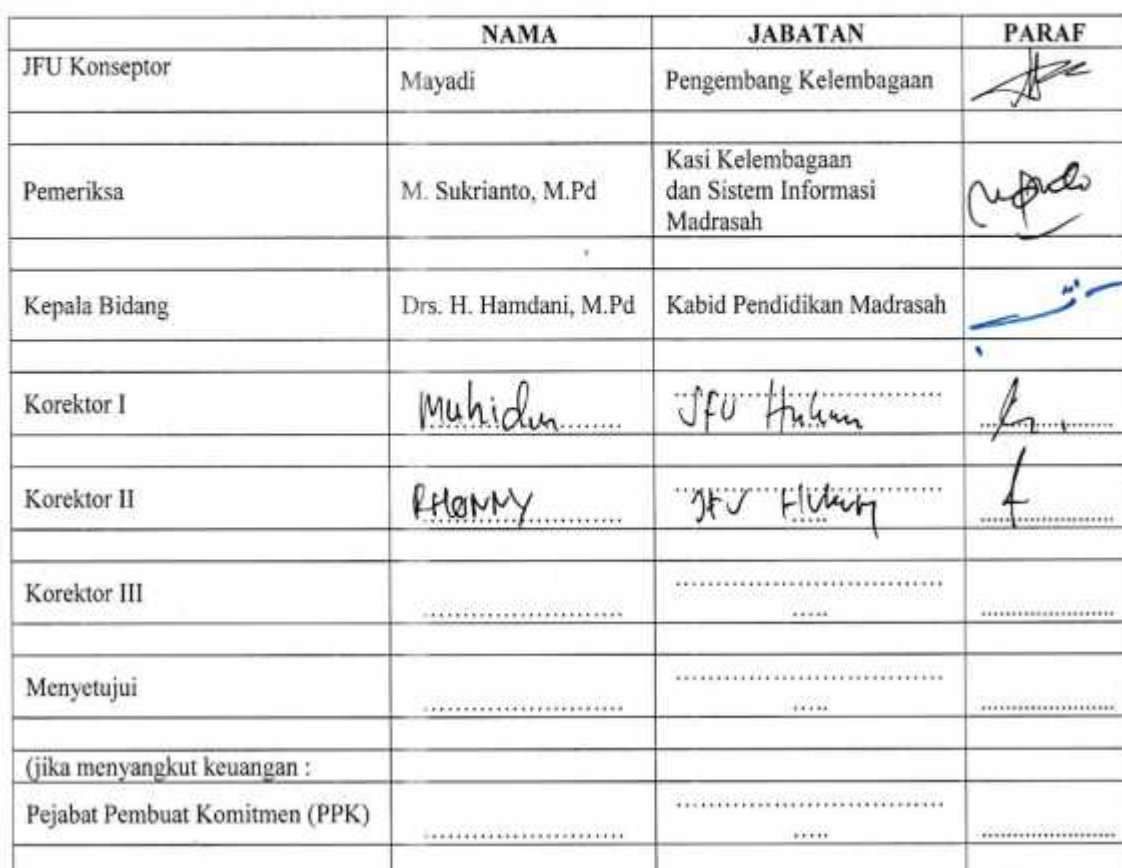 NAMA JABATAN PARAF
JFU Konseptor Mayadi Pengembang Kelembagaan
Pemeriksa M. Sukrianto, M.Pd Kasi Kelembagaan
dan Sistem Informasi
Madrasah
Kepala Bidang Drs. H. Hamdani, M.Pd Kabid Pendidikan Madrasah
Korektor I Muhidin JFU Hukum
Korektor II RHONNY JFU Hukum
Korektor III
Menyetujui
(jika menyangkut keuangan :
Pejabat Pembuat Komitmen (PPK)